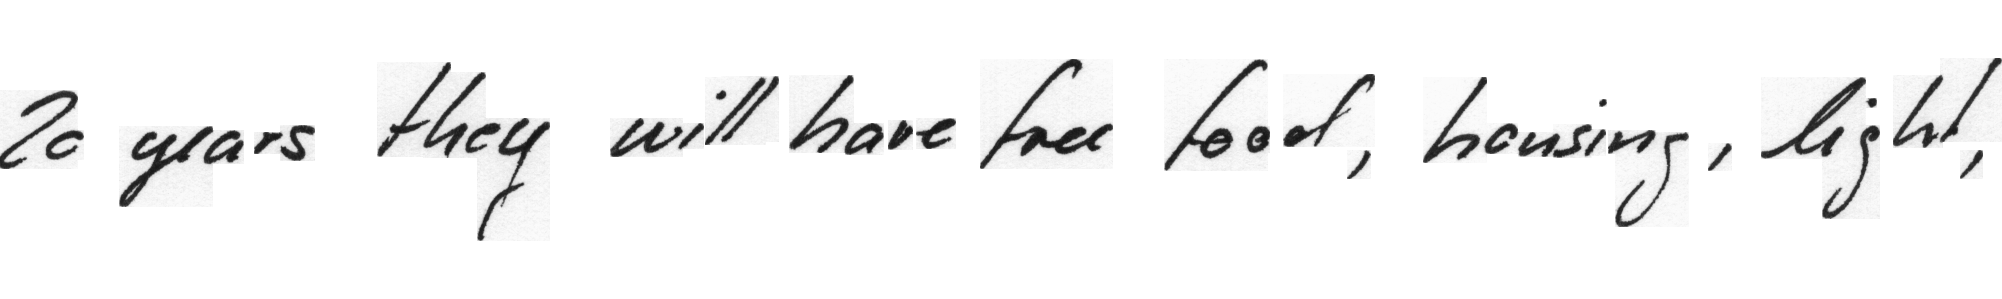 20 years they will have free food, housing, light,